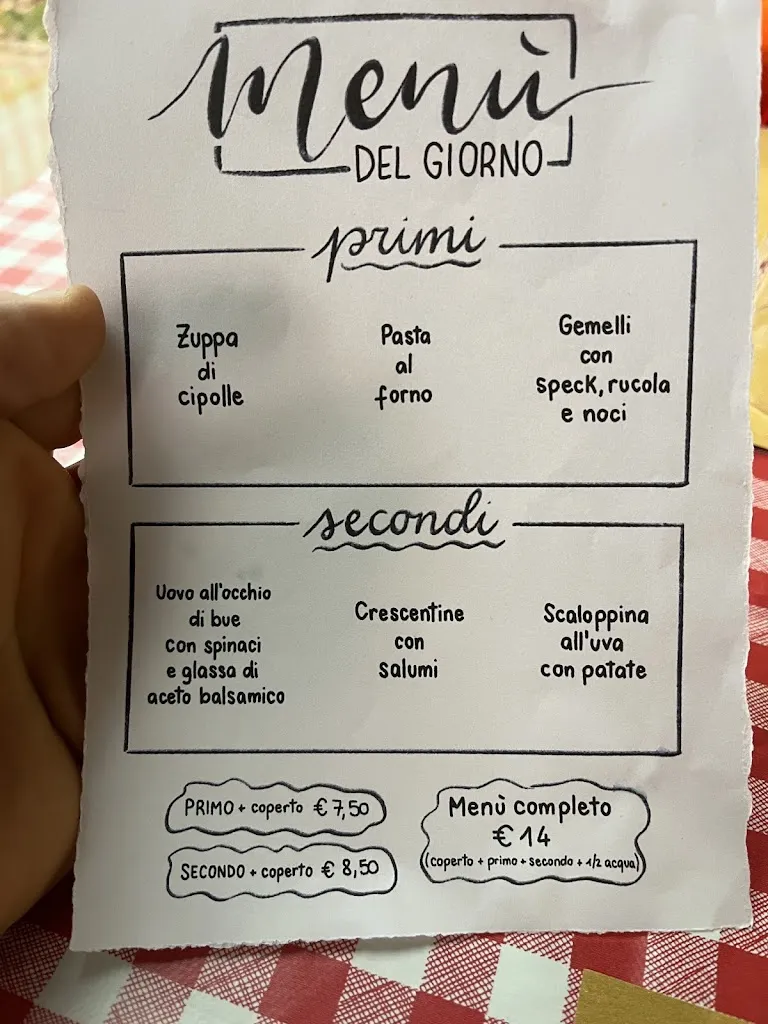 Menù
DEL GIORNO
primi
Zuppa
di
cipolle
Pasta
al
forno
Gemelli
con
speck, rucola
e noci
secondi
Uovo all'occhio
di bue
con spinaci
e glassa di
aceto balsamico
Crescentine
con
salumi
Scaloppina
all'uva
con patate
PRIMO + coperto € 7,50
SECONDO + coperto € 8,50
Menù completo
€ 14
(coperto + primo + secondo + 1/2 acqua)